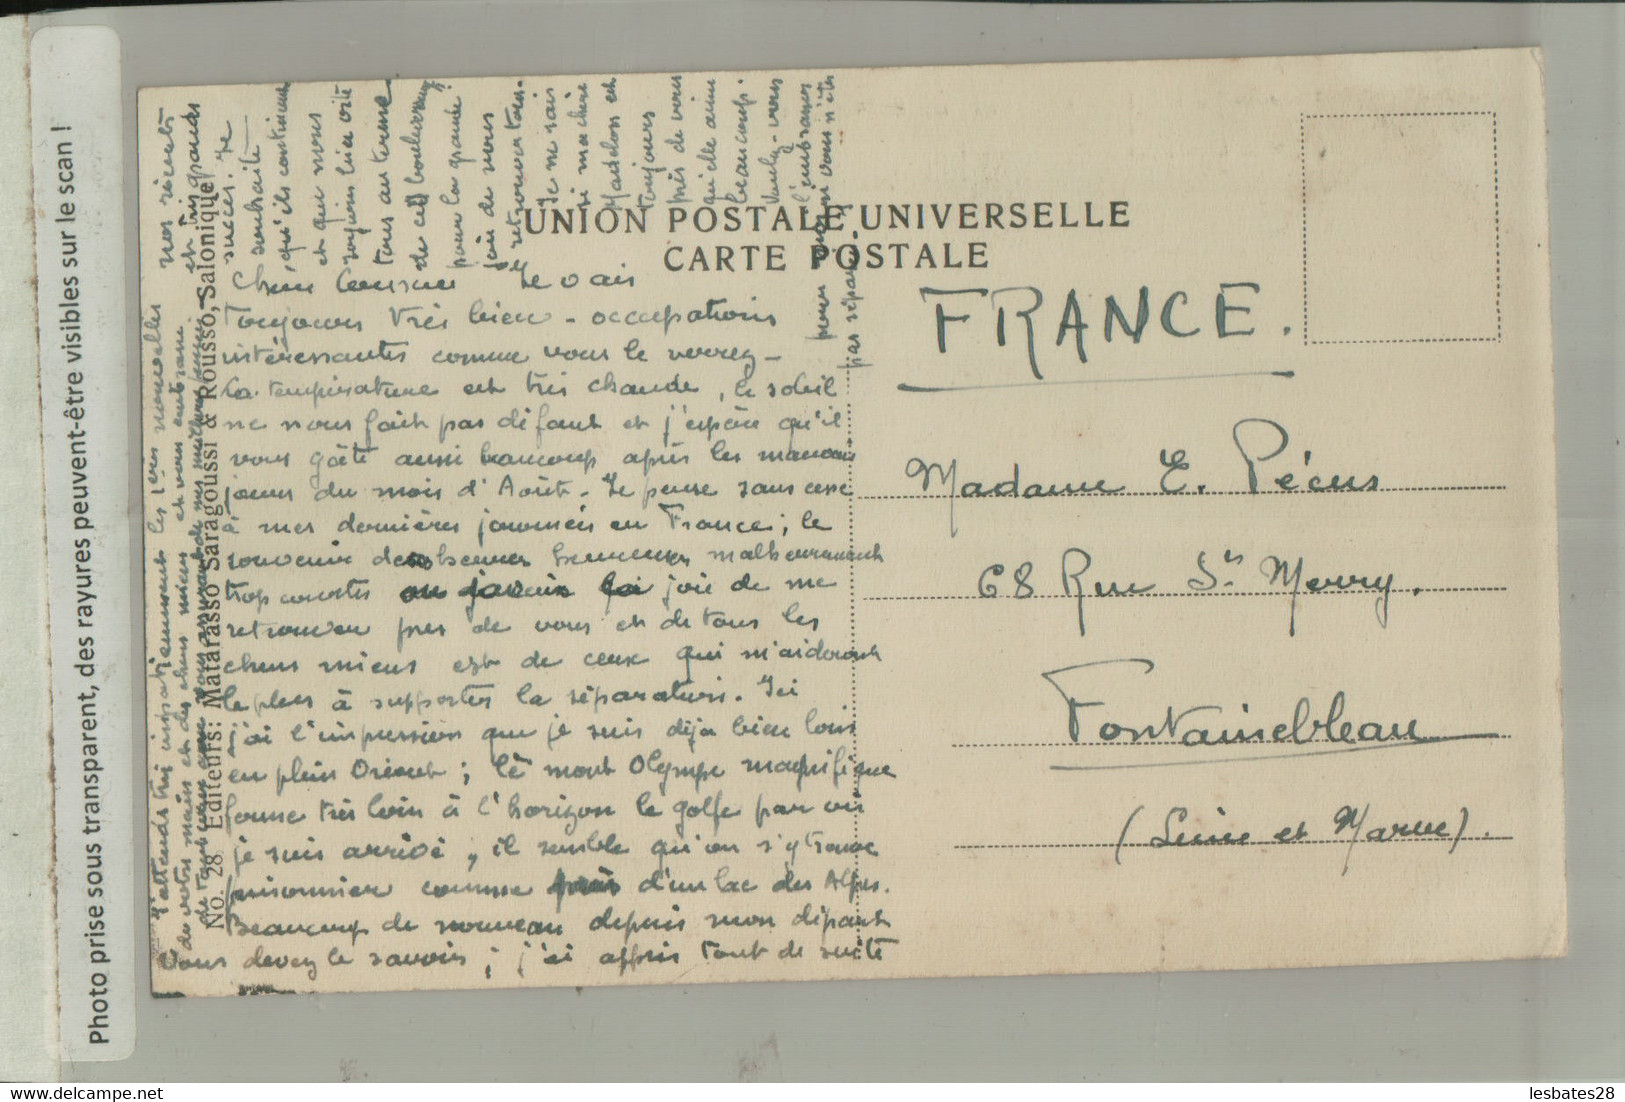 Photo prise sous transparent, des rayures peuvent-être visibles sur le scan !
UNION POSTALE UNIVERSELLE
CARTE POSTALE
No. 28 Editeurs: Matarasso Saragoussi & Rousso, Salonique
FRANCE.
Madame E. Pécus
68 Rue St Merry.
Fontainebleau
(Seine et Marne).
Je vais
Toujours très bien - occupations
intéressantes comme vous le verrez -
La température est très chaude, le soleil
ne nous fait pas défaut et j'espère qu'il
vous gâte aussi beaucoup après les mauvais
jours du mois d'Août. Je pense sans cesse
à mes dernières journées en France; le
souvenir des heures malheureusement
trop courtes où j'avais la joie de me
retrouver près de vous et de tous les
chers miens est de ceux qui m'aideront
le plus à supporter la séparation. Ici
j'ai l'impression que je suis déjà bien loin
en plein Orient; le mont Olympe magnifique
ferme très loin à l'horizon le golfe par où
je suis arrivé, il semble qu'on s'y trouve
prisonnier comme près d'un lac des Alpes.
Beaucoup de nouveau depuis mon départ
Vous devez le savoir; j'ai appris tout de suite
nos récents
et si grands
succès. Je
souhaite
qu'ils continuent
et que nous
soyions bien vite
tous au terme
de ces bouleversements
pour la grande
joie de nous
retrouver tous.
Je ne sais
si ma chère
Madelon est
toujours
près de vous
qu'elle aime
beaucoup.
Voulez-vous
l'embrasser
pour moi si vous n'êtes
pas séparés
J'attends très impatiemment les 1ères nouvelles
de votre main et des chers miens et vous embrasse